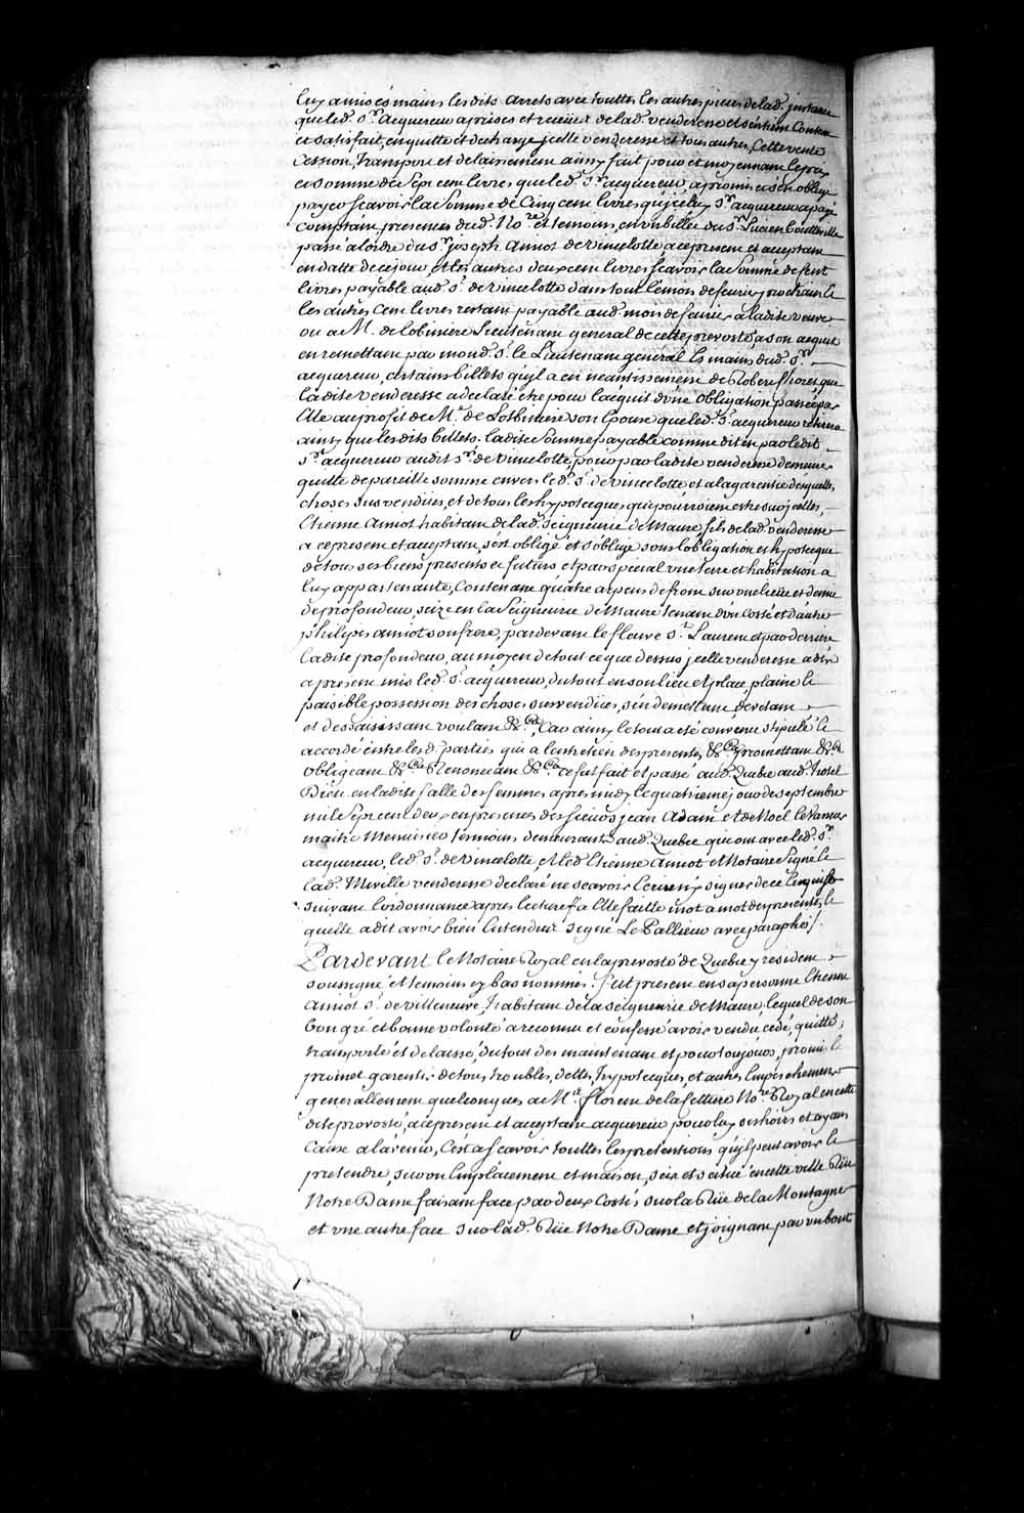 luy a mis és mains lesdits arrets avec touttes les autres pieces de lad. instance
que led. Sr. acquereur a prises et receües de lad. venderesse et s'en tien Contan
et satisfait, en quitte et decharge jcelle venderesse et tous autres, Cette vente
Cession, transport et delaissement ainsy fait pour et moyennant le prix
et somme de Sept cent livres que led. Sr. acquereur a promis et s'est obligé
payer scavoir la somme de Cinq cent livres qu'jceluy Sr. acquereur a payé
comptant presence dud. Nore. et temoins, en un billet du Sr. Lucien Boutteville
passé a l'ordre du Sr. joseph Amiot de Vincelotte a ce present et acceptant
en datte de ce jour, et les autres deux cent livres scavoir la somme de cent
livres payable aud. Sr. de Vincelotte dans tout le mois de feurier prochain et
les autres Cent livres restant payable aud. mois de feurier a ladite veuve
ou a M. de lobiniere Lieutenant general de cette prevosté a son acquit
en remettant par mond. Sr. le Lieutenant general és mains dud. Sr.
acquereur, certains billets qu'jl a en neantissement de Robert Choret que
ladite venderesse a declaré etre pour l'acquit d'une obligation passée par
Elle au profit de Mr. de Lotbiniere son Epoux que led. Sr. acquereur retirera
ainsy que lesdits billets. ladite somme payable comme dit est par ledit
Sr. acquereur audit Sr. de Vincelotte, pour par ladite venderesse demeurer
quitte de pareille somme envers led. Sr. de Vincelotte et a la garentie desquelles
choses susvendües, et de tous les hypotecques qui pourroient estre sur jcelles,
Etienne Amiot habitant de lad. Seigneurie de Maure fils de lad. venderesse
a ce present et acceptant, s'est obligé et s'oblige sous l'obligation et hypotecque
de tous ses biens presents et futurs et par special une terre et habitation a
luy appartenante, Contenant quatre arpens de front sur une lieüe et demie
de profondeur, seize en la Seigneurie de Maure tenant d'un Costé et d'autre
philipes amiot son frere, pardevant le fleuve St. Laurent et par derriere
ladite profondeur, au moyen de tout ce que dessus jcelle venderesse a dés
a present mis led. Sr. acquereur, du tout en son lieu et place, plaine et
paisible possession des choses susvendües, s'en demettant devetant
et dessaisissant voulant &ca, Car ainsy le tout a eté convenu stipulé et
accordé entre lesd. parties qui a l'entretien des presentes &ca promettant &ca
obligeant &ca Renonceant &ca ce fut fait et passé aud. Quebec aud. hotel
Dieu en ladite salle des femmes apres midy le quatrieme jour de septembre
mil sept cent deux en presences des sieurs jean Adam et de Noël le Vasseur
maitre Menuisier temoins demeurants aud. Quebec qui ont avec led. Sr.
acquereur, led. Sr. de Vincelotte, et led. Etienne Amiot et Notaire signé et
lad. Miville venderesse declaré ne scavoir Ecrire ny signer de ce Enquise
suivant l'ordonnance apres lecture a Elle faitte mot a mot des presentes, la
quelle a dit avoir bien Entendue signé Le Pallieur avec paraphe /.
Pardevant le Notaire Royal en la prevosté de Quebec y resident
soussigné et temoins cy bas nommés. fut present en sa personne Etienne
Amiot Sr. de Villeneuve, habitant de la seigneurie de Maure, lequel de son
bon gré et bonne volonté a reconnu et confessé avoir vendu, cedé, quitté,
transporté et delaissé, du tout des maintenant et pour toujours, promis et
promet garentir de tous troubles, dettes, hypotecques, et autres Empeschemens
generallement quelconques a Me. florent de la Cettiere Nore. Royal en cette
dite prevosté, a ce present et acceptant acquereur pour luy ses hoirs et ayans
Cause a l'avenir, C'est a scavoir touttes les pretentions qu'jl peut avoir et
pretendre, sur un Emplacement et maison, sise et scitué en cette ville Rüe
Notre Dame faisant face par deux Costés sur la Rüe de la Montagne
et une autre face sur lad. Rüe Notre Dame et joignant par un bout